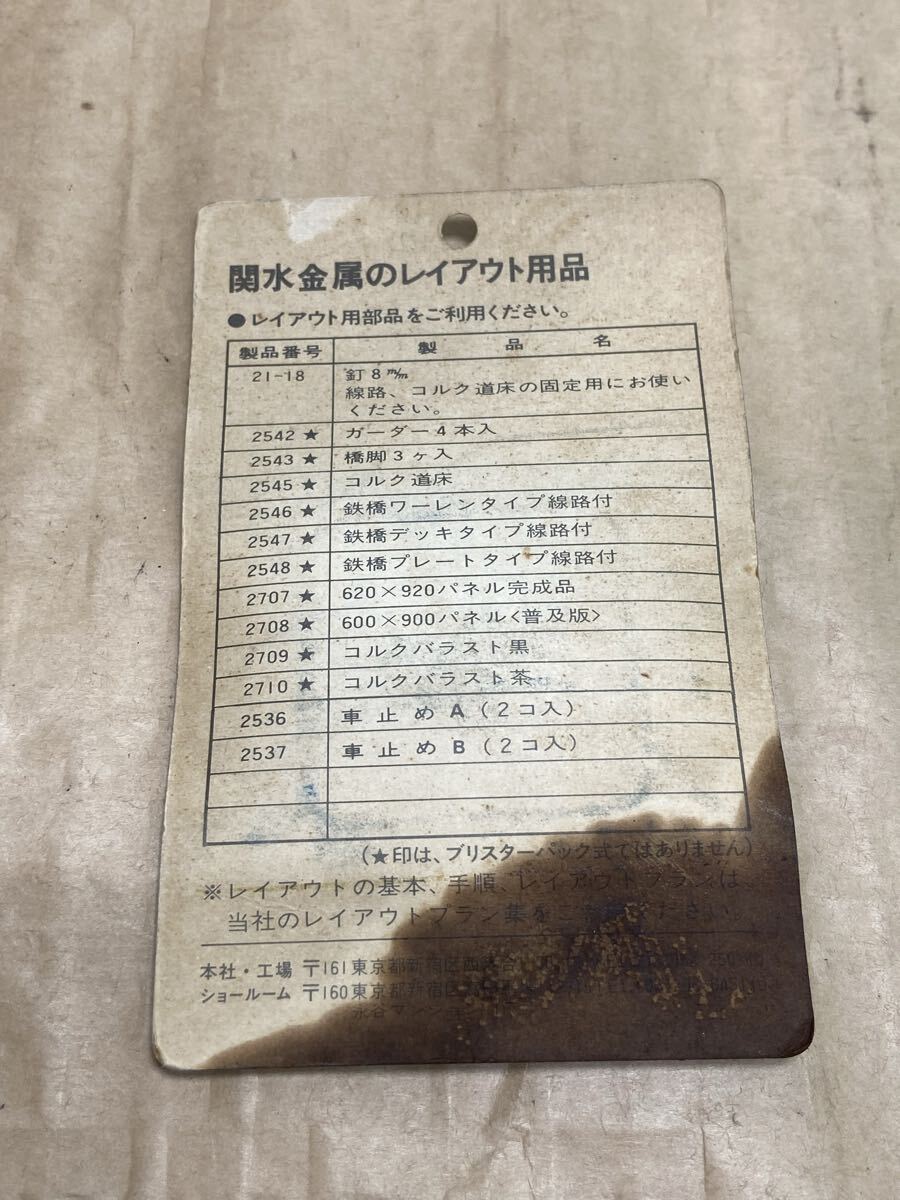 関水金属のレイアウト用品
●レイアウト用部品をご利用ください。
製品番号 製品名
21-18 釘8m/m
線路、コルク道床の固定用にお使い
ください。
2542★ ガーダー4本入
2543★ 橋脚3ヶ入
2545★ コルク道床
2546★ 鉄橋ワーレンタイプ線路付
2547★ 鉄橋デッキタイプ線路付
2548★ 鉄橋プレートタイプ線路付
2707★ 620×920パネル完成品
2708★ 600×900パネル<普及版>
2709★ コルクバラスト黒
2710★ コルクバラスト茶
2536 車止めA(2コ入)
2537 車止めB(2コ入)
(★印は、ブリスターパック式ではありません)
※レイアウトの基本、手順、レイアウトプランは
当社のレイアウトプラン集をご参照ください。
本社・工場 〒161東京都新宿区西落合
ショールーム 〒160東京都新宿区